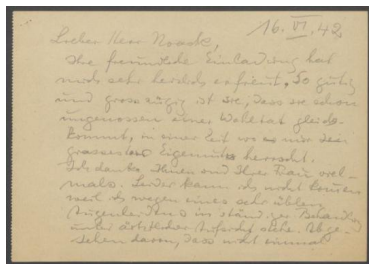 16. VI. 42.
Lieber Herr Noack,
Ihre freundliche Einladung hat
mich sehr herzlich erfreut. So gütig
und grosszügig ist sie, dass sie schon
ungenossen einer Wohltat gleich-
kommt, in einer Zeit wo nur der
grasseste Eigennutz herrscht.
Ich danke Ihnen und Ihrer Frau viel-
mals. Leider kann ich nicht kommen
weil ich wegen eines sehr üblen
Augenleidens in ständiger Behandlung
unter ärztlicher Aufsicht stehe. Abge-
sehen davon, dass wohl einmal